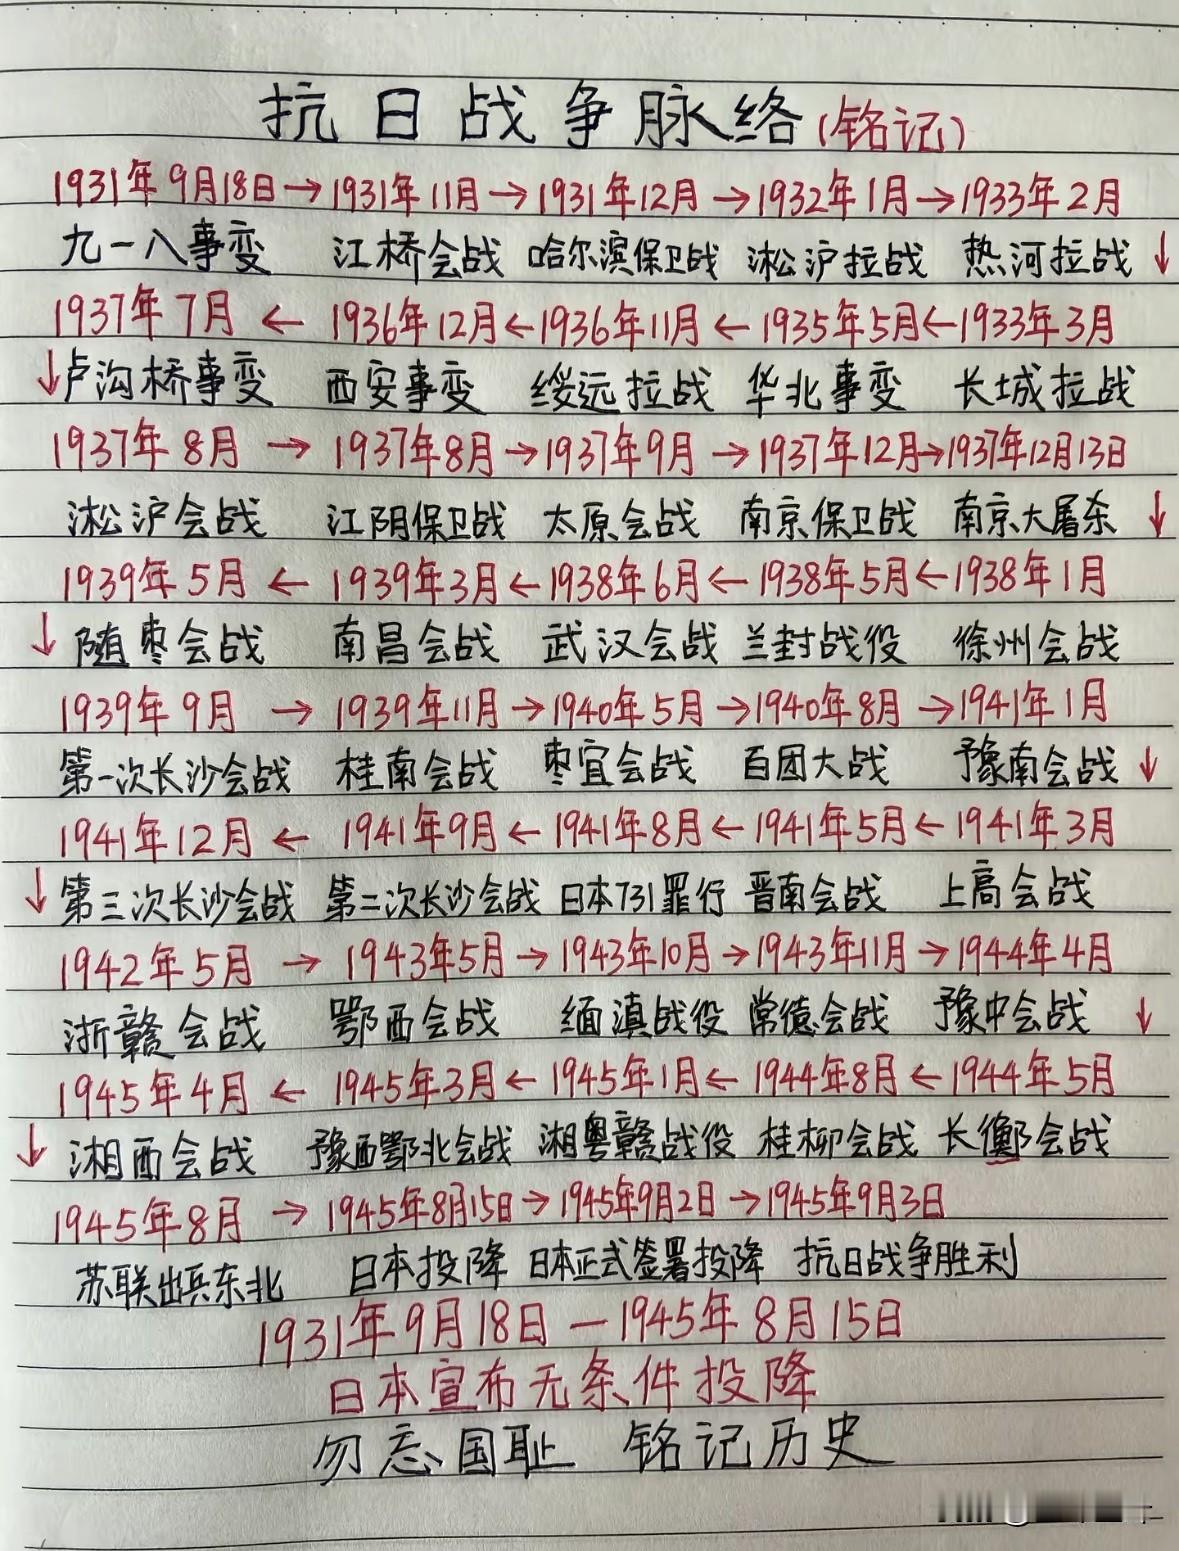 抗日战争脉络(铭记)
1931年9月18日→1931年11月→1931年12月→1932年1月→1933年2月
九一八事变 江桥会战 哈尔滨保卫战 淞沪拉战 热河拉战↓
1937年7月←1936年12月←1936年11月←1935年5月←1933年3月
↓卢沟桥事变 西安事变 绥远拉战 华北事变 长城拉战
1937年8月→1937年8月→1937年9月→1937年12月→1937年12月13日
淞沪会战 江阴保卫战 太原会战 南京保卫战 南京大屠杀↓
1939年5月←1939年3月←1938年6月←1938年5月←1938年1月
↓随枣会战 南昌会战 武汉会战 兰封战役 徐州会战
1939年9月→1939年11月→1940年5月→1940年8月→1941年1月
第一次长沙会战 桂南会战 枣宜会战 百团大战 豫南会战↓
1941年12月←1941年9月←1941年8月←1941年5月←1941年3月
↓第三次长沙会战 第二次长沙会战 日本731罪行 晋南会战 上高会战
1942年5月→1943年5月→1943年10月→1943年11月→1944年4月
浙赣会战 鄂西会战 缅滇战役 常德会战 豫中会战↓
1945年4月←1945年3月←1945年1月←1944年8月←1944年5月
↓湘西会战 豫西鄂北会战 湘粤赣战役 桂柳会战 长衡会战
1945年8月→1945年8月15日→1945年9月2日→1945年9月3日
苏联出兵东北 日本投降 日本正式签署投降 抗日战争胜利
1931年9月18日—1945年8月15日
日本宣布无条件投降
勿忘国耻 铭记历史